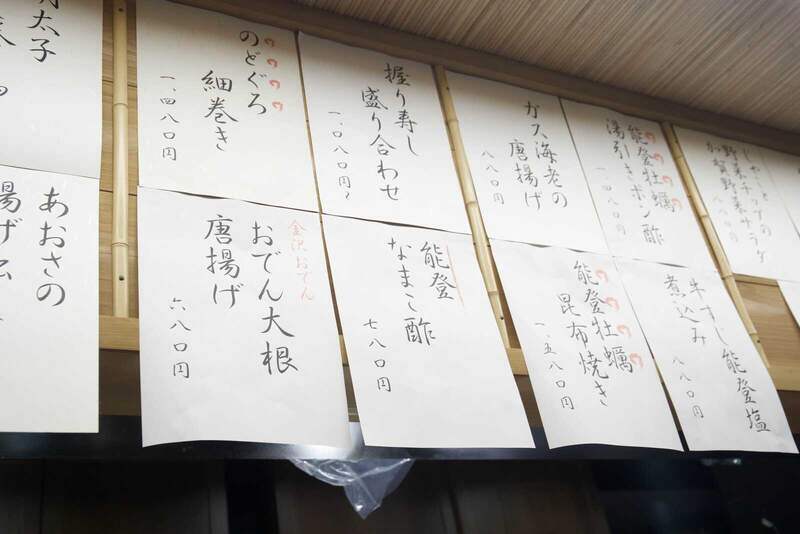 明太子
のどぐろ
細巻き
一、四八〇円
握り寿し
盛り合わせ
一、〇八〇円〜
ガス海老の
唐揚げ
八八〇円
能登牡蠣
湯引きポン酢
一、四八〇円
加賀野菜のサラダ
あおさの
揚げ
金沢おでん
おでん大根
唐揚げ
六八〇円
能登
なまこ酢
七八〇円
能登牡蠣
昆布焼き
一、五八〇円
牛すじ能登塩
煮込み
八八〇円